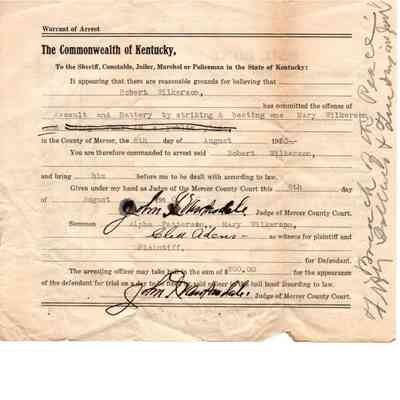 Warrant of Arrest
The Commonwealth of Kentucky,
To the Sheriff, Constable, Jailer, Marshal or Policeman in the State of Kentucky:
It appearing that there are reasonable grounds for believing that
Robert Wilkerson,
has committed the offense of
Assault and Battery by striking & beating one Mary Wilkerson
in the County of Mercer, the 8th day of August
You are therefore commanded to arrest said Robert Wilkerson,
and bring him before me to be dealt with according to law.
Given under my hand as Judge of the Mercer County Court this 8th day
of August
Judge of Mercer County Court.
Summon Alpha Mary Wilkerson,
as witness for plaintiff and
Plaintiff,
for Defendant.
The arresting officer may take bail in the sum of $ for the appearance
of the defendant for trial on a day to be said officer to the bail bond according to law.
John Judge of Mercer County Court.
Breach of the Peace